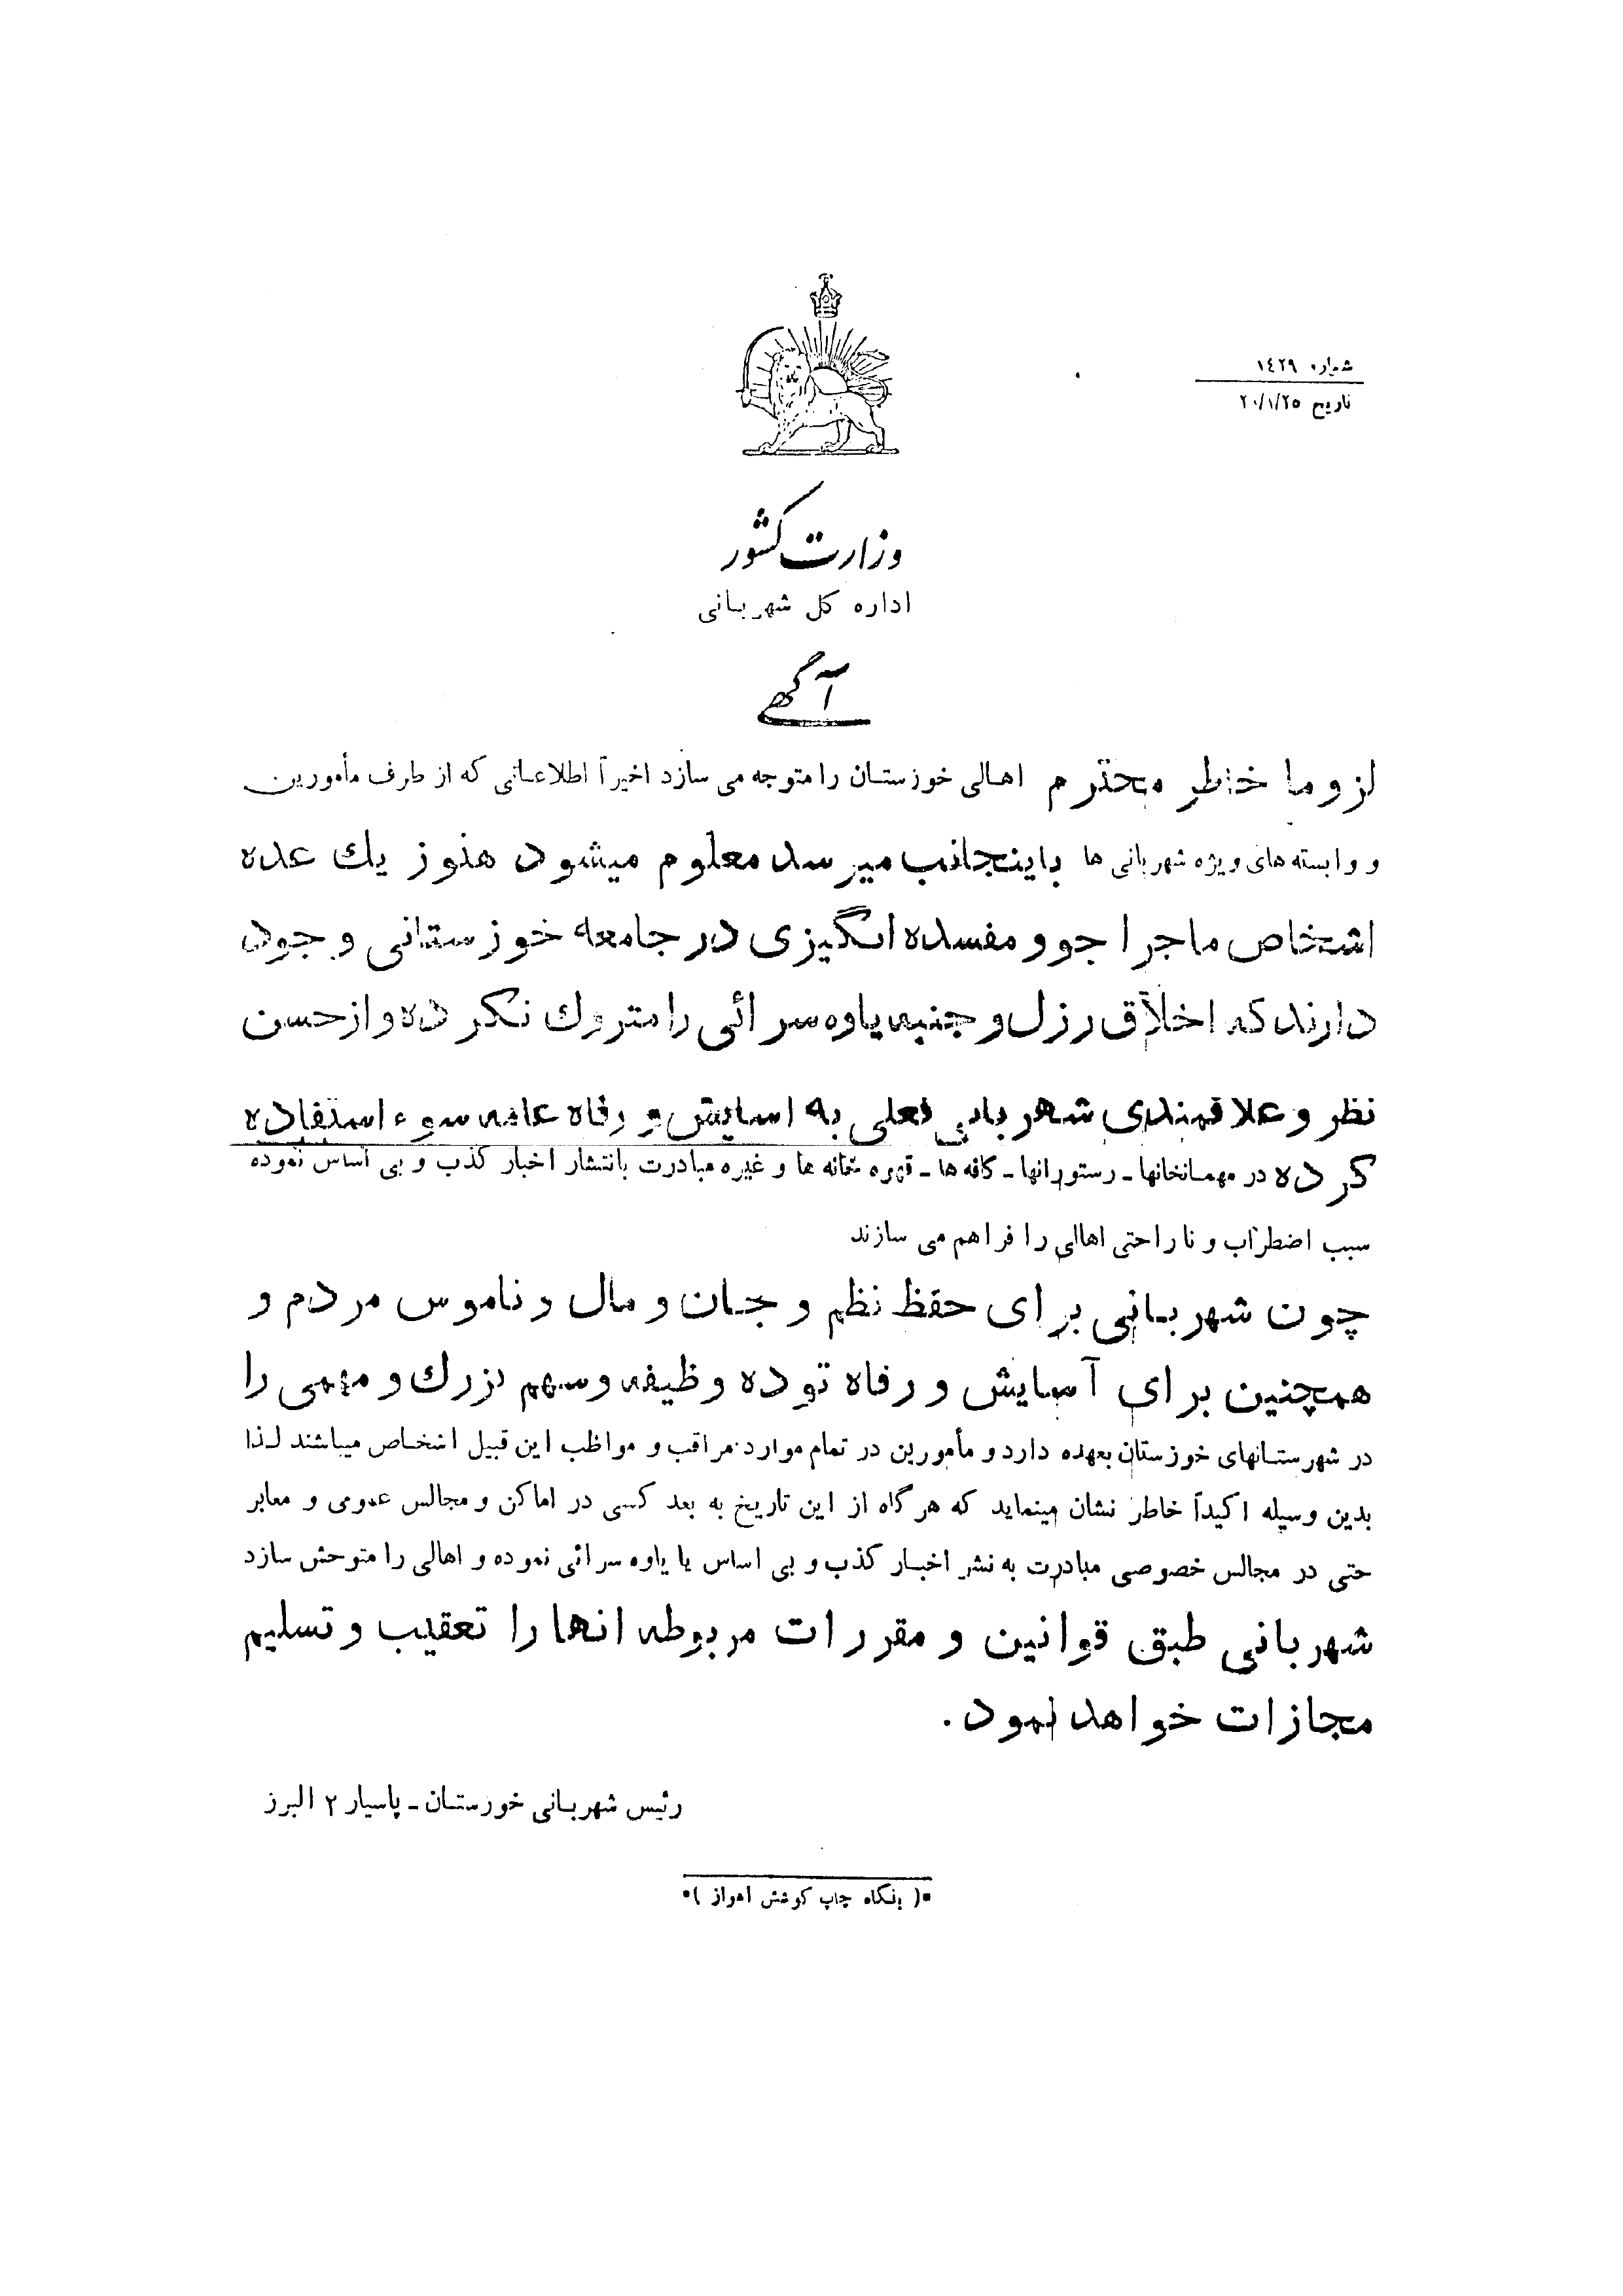 شماره ۱٤۲۹
تاریخ ۲۰/۱/۲۵
وزارت کشور
اداره کل شهربانی
آگهی
لزوما خاطر محترم اهالی خوزستان را متوجه می سازد اخیراً اطلاعاتی که از طرف مأمورین
و وابسته های ویژه شهربانی ها باینجانب میرسد معلوم میشود هنوز یك عده
اشخاص ماجرا جو و مفسده انگیزی در جامعه خوزستانی وجود
دارند که اخلاق رزل و جنبه یاوه سرائی را متروك نکرده و از حسن
نظر و علاقمندی شهربانی فعلی به اسایش و رفاه عامه سوء استفاده
کرده در مهمانخانها ـ رستورانها ـ کافه ها ـ قهوه خانه ها و غیره مبادرت بانتشار اخبار کذب و بی اساس نموده
سبب اضطراب و نا راحتی اهالی را فراهم می سازند
چون شهربانی برای حفظ نظم و جان و مال و ناموس مردم و
همچنین برای آسایش و رفاه توده وظیفه و سهم بزرك و مهمی را
در شهرستانهای خوزستان بعهده دارد و مأمورین در تمام موارد مراقب و مواظب این قبیل اشخاص میباشند لذا
بدین وسیله اکیداً خاطر نشان مینماید که هر گاه از این تاریخ به بعد کسی در اماکن و مجالس عمومی و معابر
حتی در مجالس خصوصی مبادرت به نشر اخبار کذب و بی اساس یا یاوه سرائی نموده و اهالی را متوحش سازد
شهربانی طبق قوانین و مقررات مربوطه انها را تعقیب و تسلیم
مجازات خواهد نمود.
رئیس شهربانی خوزستان ـ پاسیار ۲ البرز
*( بنگاه چاپ کوشش اهواز )*